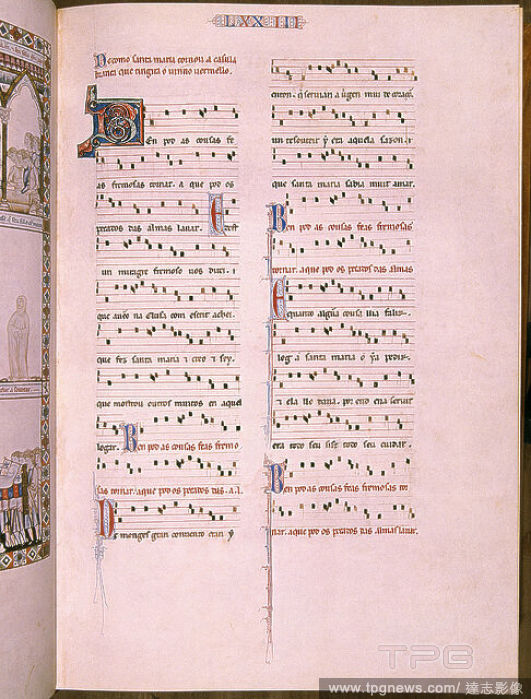 LXXIII
De como santa maria tornou a casula
branca que tingira o vinno vermello.
Ben pod as cousas fe
as fremosas tornar. a que pod os
pecados das almas lavar. E dest
un miragre fremoso vos direi. i
que aveo na Clusa com escrit achei.
que fez santa maria i creo i sey.
que mostrou outros muitos en aquel
logar. Ben pod as cousas feas fremo
sas tornar. aque pod os pecados das. a. l.
De monges gran convento eran y
enton. q servian a virgen mui de coraçon.
un tesoureir y era aquela sazon. i
que santa maria sabia muit amar.
Ben pod as cousas feas fremosas
tornar. aque pod os pecados das almas
E quanto algũa cousa lla falir.
log a santa maria o ya pedir.
i ela llo dava. por end ena servir
era todo seu sis e todo seu cuidar.
Ben pod as cousas feas fremosas tor
nar. aque pod os pecados das almas lavar.
TPG
www.tpgnews.com/達志影像